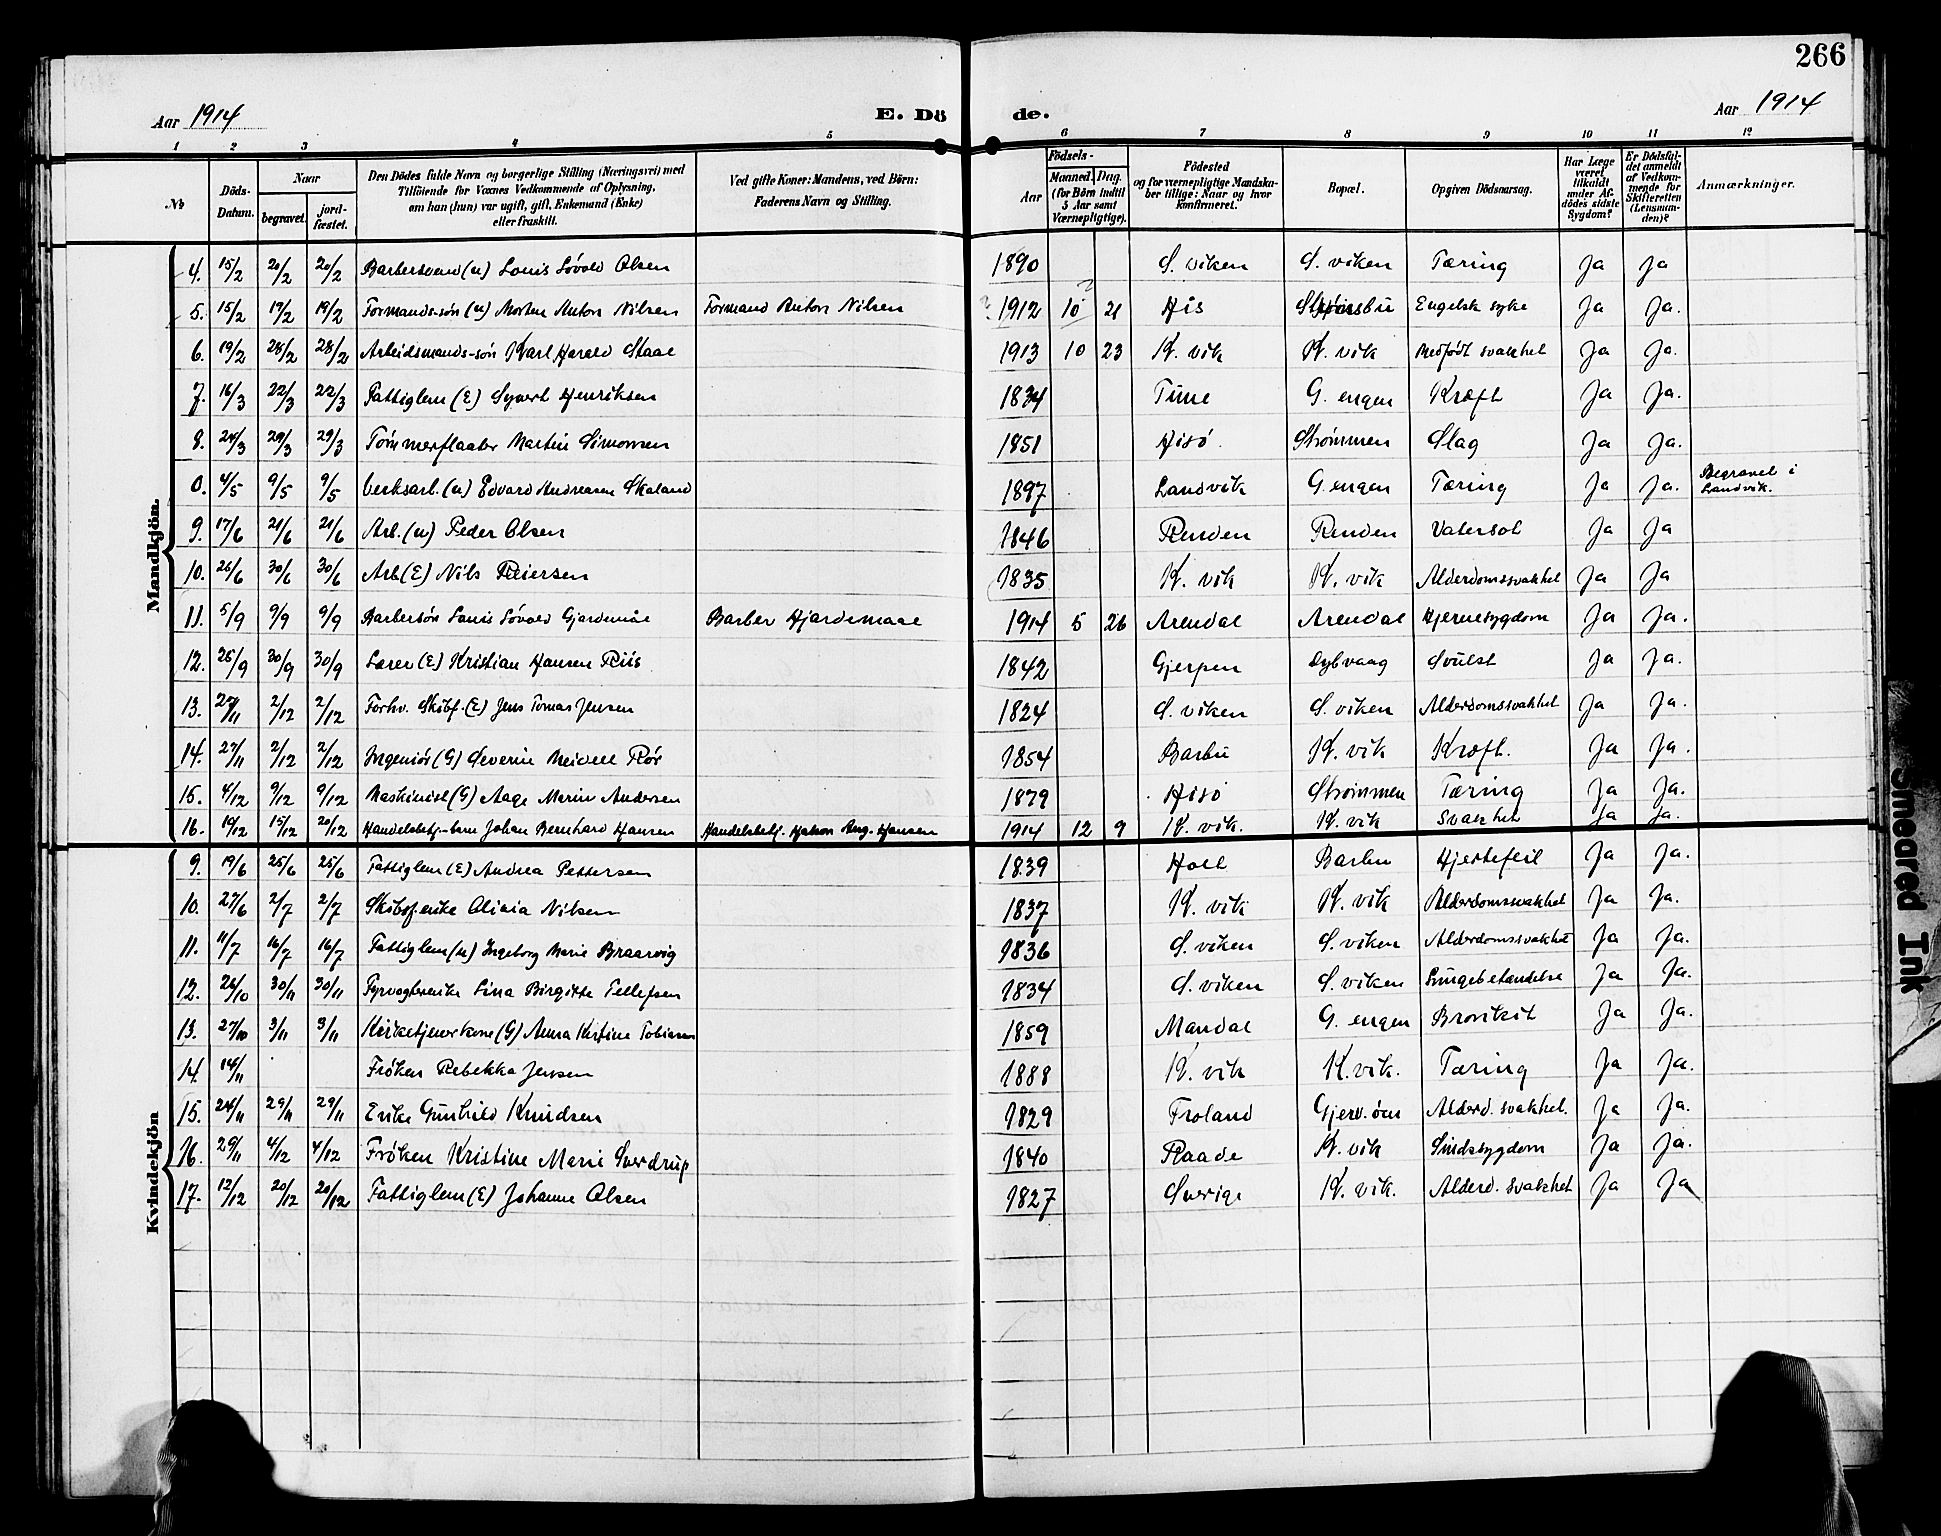 266
Aar 1914 E. Dö de. Aar 1914
1 2 3 4 5 6 7 8 9 10 11 12
№ Döds-Datum. Naar begravet. jord-fæstet. Den Dödes fulde Navn og borgerlige Stilling (Næringsvei) med Tilföiende for Voxnes Vedkommende af Oplysning, om han (hun) var ugift, gift, Enkemand (Enke) eller fraskilt. Ved gifte Koner: Mandens, ved Börn: Faderens Navn og Stilling. Födsels- Aar Maaned. Dag. (for Börn indtil 5 Aar samt Værnepligtige). Födested og for værnepligtige Mandskaber tillige: Naar og hvor konfirmeret. Bopæl. Opgiven Dödsaarsag. Har Læge været tilkaldt under Afdödes sidste Sygdom? Er Dödsfaldet anmeldt af Vedkommende for Skifteretten (Lensmanden)? Anmærkninger.
Mandkjön.
4. 15/2 20/2 20/2 Barbersvend (u) Louis Lövold Olsen 1890 S. viken S. viken Tæring Ja Ja
5. 15/2 19/2 19/2 Formands-søn (u) Morten Anton Nilsen Formand Anton Nilsen ? 1912 10 ? 21 His Strömsbu Engelsk syke Ja Ja.
6. 19/2 28/2 28/2 Arbeidsmands-søn Karl Harald Staal 1913 10 23 K. vik K. vik Medfødt svakhet Ja Ja.
7. 16/3 22/3 22/3 Fattiglem (E) Syvert Henriksen 1834 Tune G. engen Kræft Ja Ja.
8. 24/3 29/3 29/3 Tømmerflaater Martin Simonsen 1851 Hisö. Strömmen Slag Ja Ja.
0. 4/5 9/5 9/5 Verksarb. (u) Edvard Andreasen Skaland 1897 Landvik G. engen Tæring Ja Ja. Begravet i Landvik.
9. 17/6 21/6 21/6 Arb. (u) Peder Olsen 1846 Renden Renden Vatersot Ja Ja
10. 26/6 30/6 30/6 Arb (E) Nils Reiersen 1835 K. vik K. vik Alderdomssvakhet Ja Ja
11. 5/9 9/9 9/9 Barbersøn Louis Lövold Gjardemåe Barber Hjardemaal 1914 5 26 Arendal Arendal Hjernesygdom Ja Ja.
12. 26/9 30/9 30/9 Lærer (E) Kristian Hansen Riis 1842 Gjerpen Dybvaag Svulst Ja Ja.
13. 27/11 2/12 2/12 Forhv. Skibsf. (E) Jens Tomas Jensen 1824 S. viken S. viken Alderdomssvakhet Ja Ja.
14. 27/11 2/12 2/12 Ingeniör (G) Severin Meidell Rör 1854 Barbu K. vik Kræft. Ja Ja.
15. 4/12 9/12 9/12 Maskinist (G) Aage Marin Andersen 1879 Hisö Strömmen Tæring Ja Ja.
16. 19/12 15/12 20/12 Handelsbetj.-barn Johan Bernhard Hansen Handelsbetj. Hakon Aug. Hansen 1914 12 9 K. vik. K. vik Svakhet Ja Ja.
Kvindekjön
9. 19/6 25/6 25/6 Fattiglem (E) Andrea Pettersen 1839 Holt Barbu Hjertefeil Ja Ja.
10. 27/6 2/7 2/7 Skibsf. enke Olivia Nilsen 1837 K. vik K. vik Alderdomssvakhet Ja Ja.
11. 11/7 16/7 16/7 Fattiglem (u) Ingeborg Marie Braarvig 1836 S. viken S. viken Alderdomssvakhet Ja Ja.
12. 26/10 30/11 30/11 Fyrvogterenke Lina Birgitte Tellefsen 1834 S. viken S. viken Lungebetændelse Ja Ja.
13. 27/10 3/11 3/11 Kirketjenerkone (G) Anna Kirstine Tobiasen 1859 Mandal G. engen Bronkit Ja Ja.
14. 14/11 Frøken Rebekka Jensen 1888 K. vik K. vik. Tæring Ja Ja.
15. 24/11 29/11 29/11 Enke Gunhild Knudsen 1829 Froland Gjerv.öen Alderd. svakhet. Ja Ja.
16. 29/11 4/12 4/12 Frøken Kristine Marie Sverdrup 1840 Raade K. vik Sindssygdom Ja Ja.
17. 12/12 20/12 20/12 Fattiglem (E) Johanne Olsen 1827 Sverige K. vik. Alderd. svakhet Ja Ja
Smeared Ink